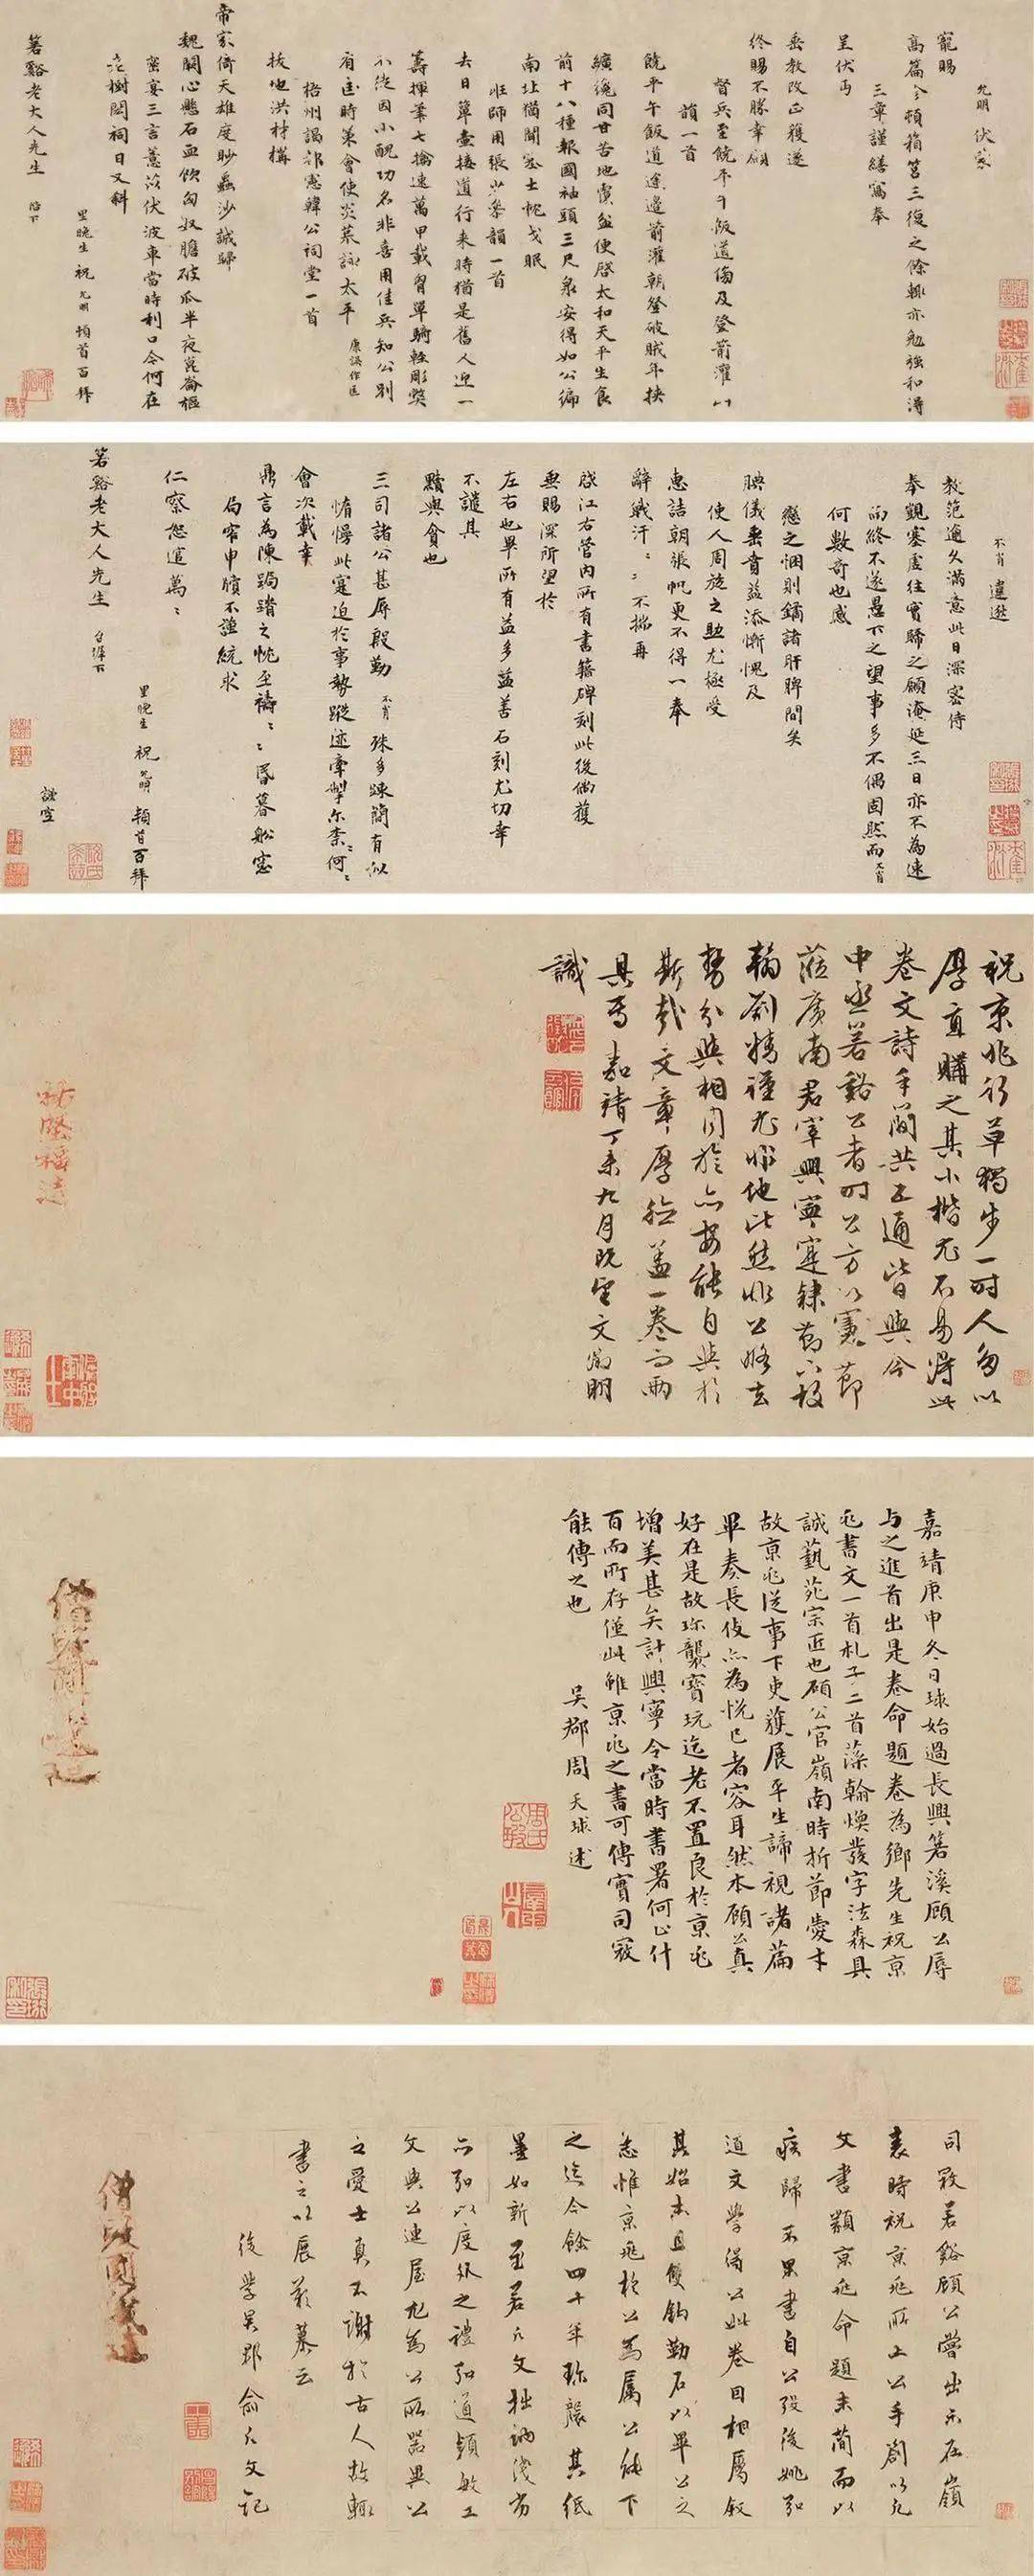 允明 伏蒙
寵賜
高篇令頓箱筥三復之餘輒亦勉強和得
三章謹繕寫奉
呈伏丐
垂教改正獲遂
終賜不勝幸願
督兵至饒平午飯道傷及登箭灌山
韻一首
饒平午飯道途邊箭灌朝登破賊年挾
纊纔同甘苦地囊盆便啓太和天平生食
前十八種報國袖頭三尺泉安得如公編
南北猶聞塞士枕戈眠
班師用張少參韻一首
去日簞壺接道行来時猶是舊人迎一
籌揮筆七擒速萬甲載胷單騎輕彫獎
不從因小醜功名非喜用佳兵知公别
有匡時策會使炎荒詠太平
梧州謁都憲韓公祠堂一首
拔地洪材構
帝家倚天雄度眇蟲沙誠歸
魏闕心懸石血飲匈奴膽破瓜半夜崑崙樞
蛮宴三言薏苡伏波車當時利口今何在
花樹閟祠日又斜
里晚生 祝 允明 頓首百拜
箬谿老大人先生 㙒下
不肖 違遜
教范逾久滿意此日深密侍
奉觀塞虚往實歸之願淹延三日亦不為速
而終不遂愚下之望事多不偶固然而不肖
何數奇也感
戀之悃則鏤諸肝脾間矣
腆儀垂賁益添慚愧及
使人周旋之助尤極受
惠詰朝張帆更不得一奉
辭戢汗〻不揣再
啟江右管内所有書籍碑刻此後倘獲
垂賜深所望於
左右也畢所有益多益善石刻尤切幸
不譴其
黷與貪也
三司諸公甚厚殷勤 不肖 殊多疎簡有似
惰慢此寔迫於事勢蹤迹牽掣尔柰何〻
會次載幸
鼎言為陳跼蹐之忱至禱〻昏暮舩窓
局窄申牘不謹統求
仁察恕這萬〻
里晚生 祝 允明 頓首百拜
箬谿老大人先生 台墀下
謹空
祝京兆行草獨步一時人多以
厚直購之其小楷尤不易得此
卷文詩手簡共五通皆與今
中丞若谿公者時公方以憲節
蒞廣南君宰興寧寔隸節下故
翰劄精謹尤非他比然非公略去
勢分與相周旋亦安能自與於
斯哉文章厚德蓋一卷而兩
具焉嘉靖丁未九月既望文徵明
識
嘉靖庚申冬日球始過長興箬溪顧公辱
与之進首出是卷命題卷為鄉先生祝京
兆書文一首札子二首藻翰煥發字法森具
誠藝苑宗匠也顧公官嶺南時折節愛才
故京兆從事下吏獲展平生諦視諸篇
畢奏長伎亦為悅己者容耳然本顧公真
好在是故珎襲寶玩迄老不置良於京兆
增美甚矣計興寧令當時書署何止什
百而所存僅此雖京兆之書可傳實司寇
能傳之也 吳郡周天球述
司寇若谿顧公嘗出示在嶺
表時祝京兆所上公手簡以先
父書類京兆命題末簡而以
疾歸不果書自公歿後姚弘
道文學得公此卷因相屬叙
其始末且雙鈎勒石以畢公之
志惟京兆於公為屬公能下
之迄今餘四十年珎襲其紙
墨如新至若允文拙訥淺劣
亦弘以度外之禮弘道穎敏工
文與公連屋尤為公所器異公
之愛士真不謝於古人故輒
書之以展羡慕云
後學吳郡俞允文記